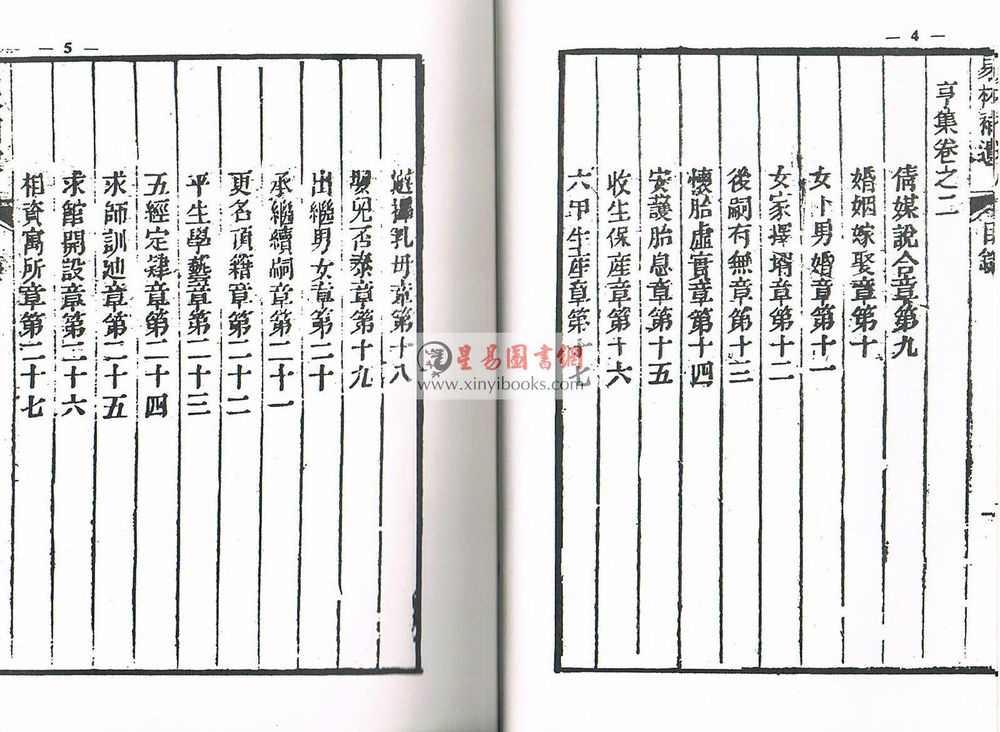 — 4 —
易林補遺 目錄 一
亨集卷之二
倩媒說合章第九
婚姻嫁娶章第十
女卜男婚章第十一
女家擇壻章第十二
後嗣有無章第十三
懷胎虛實章第十四
安護胎息章第十五
收生保産章第十六
六甲生産章第十七
— 5 —
選擇乳母章第十八
嬰兒否泰章第十九
出繼男女章第二十
承繼續嗣章第二十一
更名頂籍章第二十二
平生學藝章第二十三
五經定肄章第二十四
求師訓廸章第二十五
求館開設章第二十六
相資寓所章第二十七
星易圖書網
www.xinyibooks.com